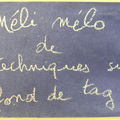 Méli mélo
de
techniques su
fond de tag